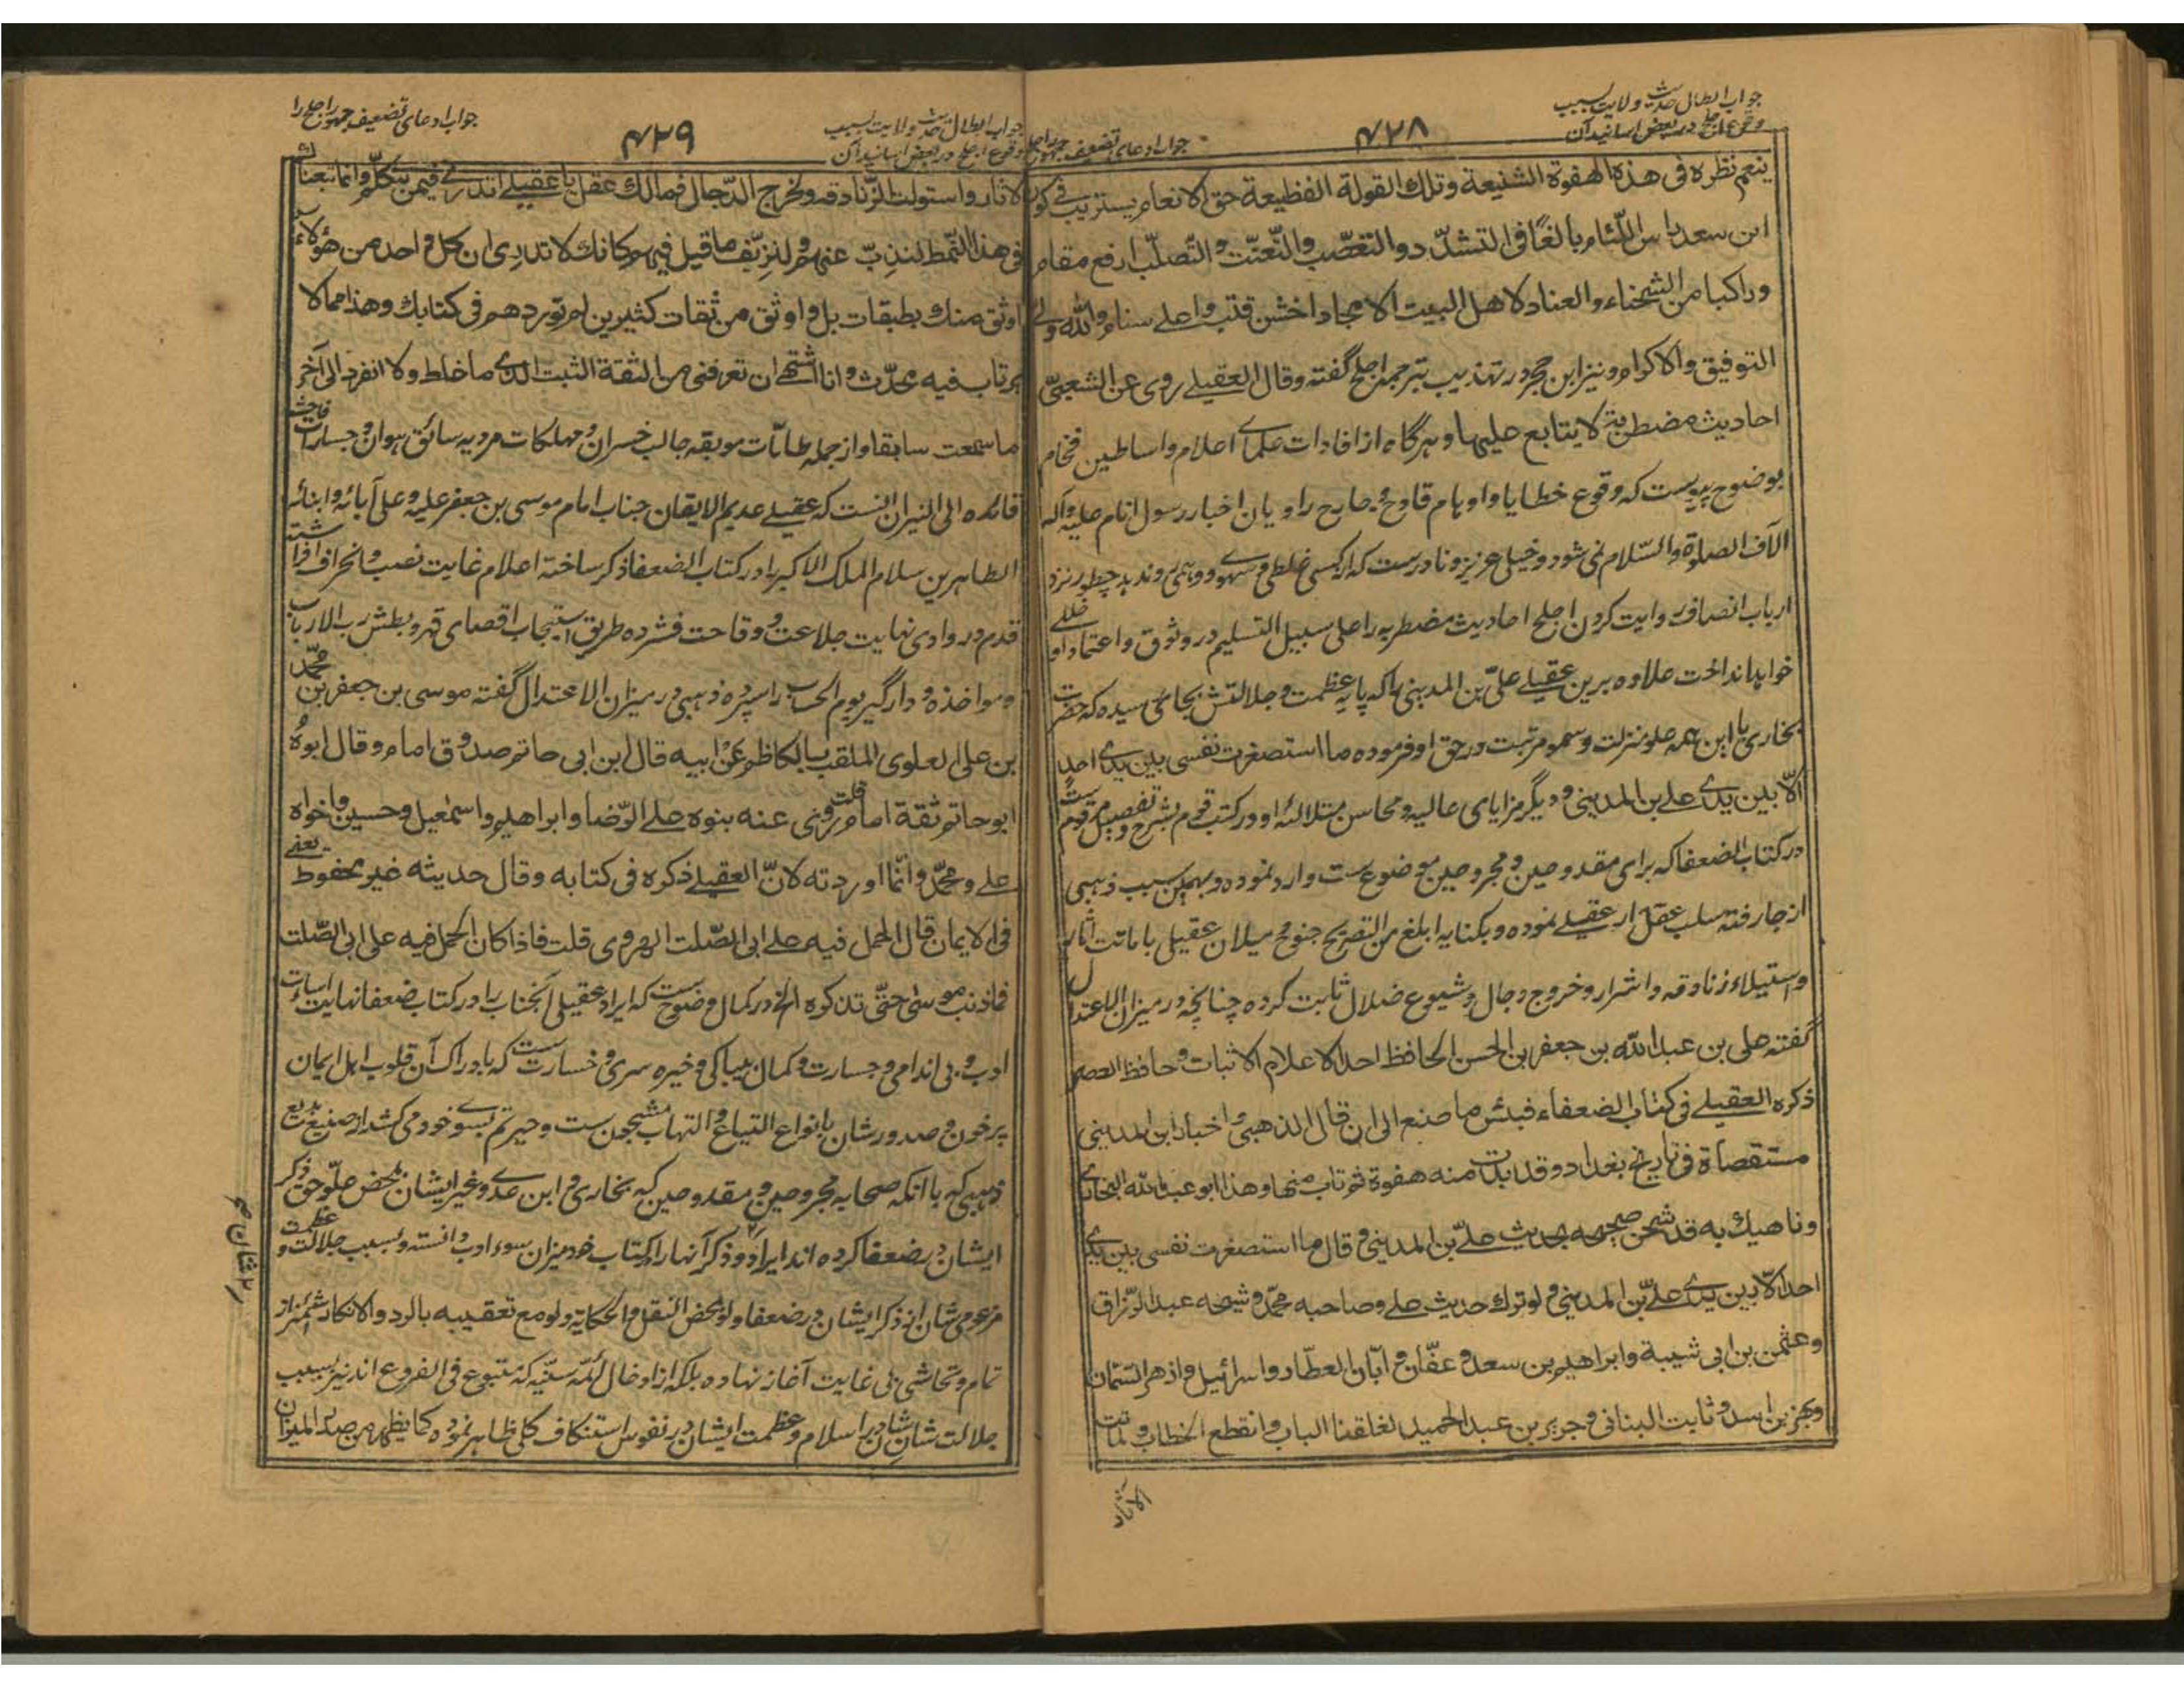 جواب ابطال حدیث ولایت بسبب
وقوع اجلح در بعض اسانید آن
۴۲۸
جواب ادعای تضعیف جمهور اجلح را
ینعم نظره فی هذه الهفوة الشنیعة وتلك القولة الفظیعة حق الانعام یستریب فی کون
ابن سعد راس اللئام بالغا فی التشدد والتعصب والتعنت والتصلب ارفع مقام
وراکبا من الشحناء والعناد لاهل البیت الامجاد اخشن قتب واعلی سنام والله ولی
التوفیق والاکرام ونیز ابن حجر در تهذیب بترجمه اجلح گفته وقال العقیلی روی عن الشعبی
احادیث مضطربة لا یتابع علیها وهرگاه از افادات علمای اعلام واساطین فخام
بوضوح پیوست که وقوع خطایا واوهام قادح و جارح راویان اخبار رسول انام علیه وآله
الآف الصلوة والسلام نمی شود وخیلی عزیز ونادرست که از کسی غلطی وسهوی ووهمی روندهد پس چطور نزد
ارباب انصاف روایت کردن اجلح احادیث مضطربه را علی سبیل التسلیم در وثوق واعتماد او خللی
خواهد انداخت علاوه برین عقیلی علی بن المدینی را که پایه عظمت وجلالتش بجائی رسیده که حضرت
بخاری با این همه علو منزلت وسمو مرتبت در حق او فرموده ما استصغرت نفسی بین یدی احد
الا بین یدی علی بن المدینی ودیگر مزایای عالیه ومحاسن متلالئه او در کتب قوم بشرح وتفصیل مرقوم ست
در کتاب الضعفا که برای مقدوحین و مجروحین موضوع ست وارد نموده وبهمین سبب ذهبی
از جا رفته سلب عقل از عقیلی نموده وبکنایه ابلغ من التصریح جنوح ومیلان عقیلی باماتت آثار
واستیلاء زنادقه واشرار وخروج دجال وشیوع ضلال ثابت کرده چنانچه در میزان الاعتدال
گفته علی بن عبد الله بن جعفر بن الحسن الحافظ احد الاعلام الاثبات وحافظ العصر
ذکره العقیلی فی کتاب الضعفاء فبئس ما صنع الی ان قال الذهبی واخبار ابن المدینی
مستقصاة فی تاریخ بغداد وقد بدت منه هفوة ثم تاب منها وهذا ابو عبد الله البخاری
وناهیك به قد شحن صحیحه بحدیث علی بن المدینی وقال ما استصغرت نفسی بین یدی
احد الا بین یدی علی بن المدینی ولو ترك حدیث علی وصاحبه محمد وشیخه عبد الرزاق
وعثمن بن ابی شیبة وابراهیم بن سعد و عفان و ابان العطار واسرائیل وازهر السمان
وبهز بن اسد وثابت البنانی وجریر بن عبد الحمید لغلقنا الباب وانقطع الخطاب ولماتت
الاثار
جواب ابطال حدیث ولایت بسبب
وقوع اجلح در بعض اسانید آن
۴۲۹
جواب ادعای تضعیف جمهور اجلح را
الاثار واستولت الزنادقة ولخرج الدجال فمالك عقل یا عقیلی اتدری فیمن تتکلم وانما تبعناك
فی هذا النمط لنذب عنهم ولنزیف ما قیل فیهم وکانك لا تدری ان کل واحد من هؤلاء
اوثق منك بطبقات بل واوثق من ثقات کثیرین لم توردهم فی کتابك وهذا مما لا
یرتاب فیه محدث وانا اشتهی ان تعرفنی من الثقة الثبت الذی ما غلط ولا انفرد الی آخر
ما سمعت سابقا واز جمله طامات موبقه جالب خسران ومهلکات مردیه سائق هوان وجسارات فاحشه
قائده الی النیران آنست که عقیلی عدیم الایقان جناب امام موسی بن جعفر علیه وعلی آبائه وابنائه
الطاهرین سلام الملك الاکبر را در کتاب الضعفا ذکر ساخته اعلام غایت نصب وانحراف افراشته
قدم در وادی نهایت خلاعت و وقاحت فشرده طریق استیجاب اقصای قهر وبطش رب الارباب
ومواخذه و دارگیر یوم الحساب را سپرده ذهبی در میزان الاعتدال گفته موسی بن جعفر بن محمد
بن علی العلوی الملقب بالکاظم عن ابیه قال ابن ابی حاتم صدوق امام وقال ابوه
ابو حاتم ثقة امام قلت روی عنه بنوه علی الرضا وابراهیم واسمعیل وحسین واخواه
علی ومحمد وانما اوردته لان العقیلی ذکره فی کتابه وقال حدیثه غیر محفوظ یعنی
فی الایمان قال الحمل فیه علی ابی الصلت الهروی قلت فاذا کان الحمل فیه علی ابی الصلت
فما ذنب موسی حتی تذکره الخ در کمال وضوح ست که ایراد عقیلی آنجناب را در کتاب ضعفا نهایت اساءت
ادب وبی اندامی وجسارت وکمال بیباکی و خیره سری و خسارت ست که بادراک آن قلوب اهل ایمان
پر خون وصدور شان بانواع التیاع والتهاب مشحون ست وحیرتم بسوی خود می کشد از صنیع بدیع
ذهبی که با آنکه صحابه مجروحین و مقدوحین که بخاری و ابن عدی وغیر ایشان بمحض علو حق ذکر
ایشان در ضعفا کرده اند ایراد وذکر آنها را در کتاب خود میزان سوء ادب دانسته وبسبب جلالت وعظمت
مزعومی شان از ذکر ایشان در ضعفا ولو بمحض النقل والحکایة ولو مع تعقیبه بالرد والانکار اشمئزاز
تمام وتحاشی بی غایت آغاز نهاده بلکه از ادخال ائمه سنیه که متبوع فی الفروع اند نیز بسبب
جلالت شان شان در اسلام وعظمت ایشان در نفوس استنکاف کلی ظاهر نموده کما یظهر من صدر المیزان